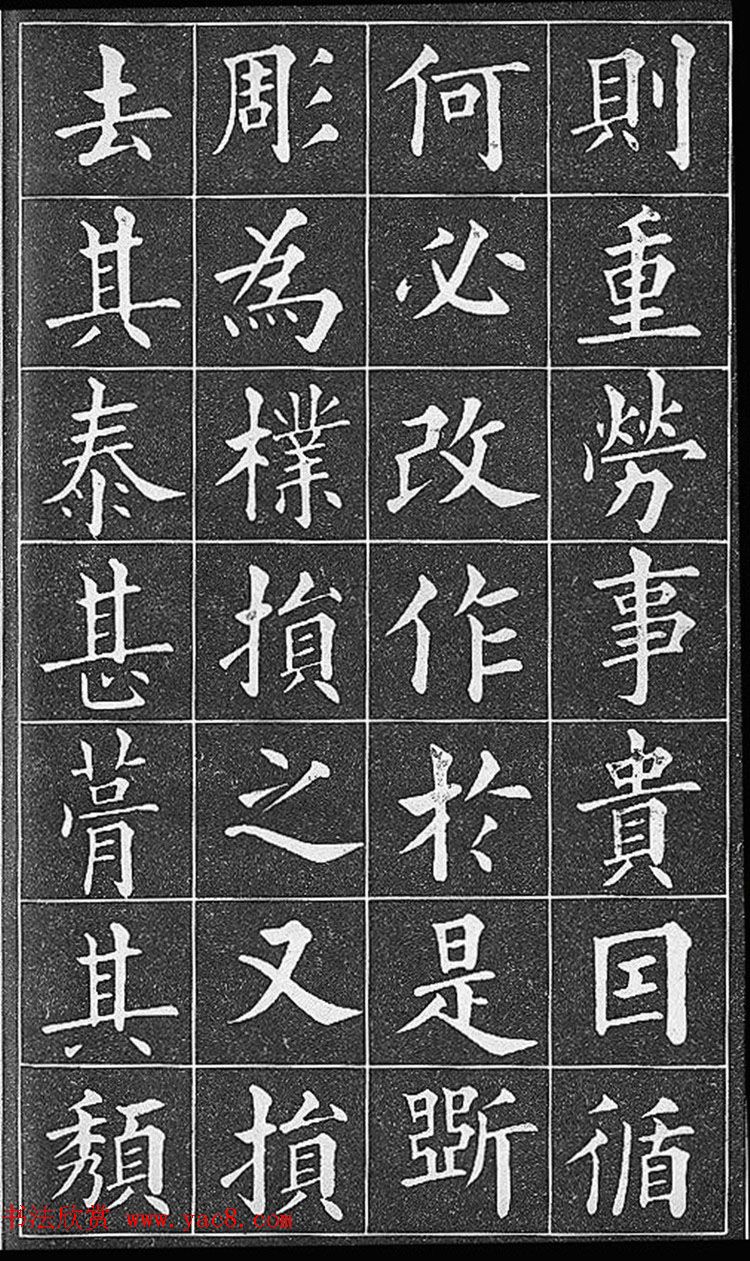 則重勞事貴因循
何必改作於是斲
彫為樸損之又損
去其泰甚葺其頹
书法欣赏 www.yac8.com